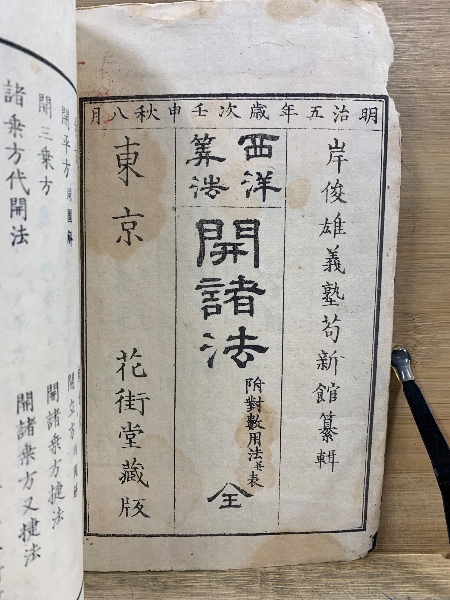 明治五年歳次壬申秋八月
岸俊雄義塾苟新館纂輯
西洋
筭法
開諸法
附對數用法並表
全
東京
花街堂藏版
開平方同圖解
開三乗方
諸乗方代開法
開諸乗方捷法
開諸乗方又捷法